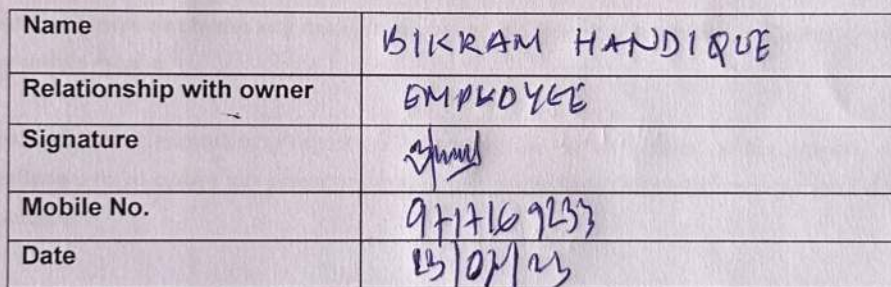 Name BIKRAM HANDIQUE
Relationship with owner EMPLOYEE
Signature
Mobile No. 9717169233
Date 23/07/23